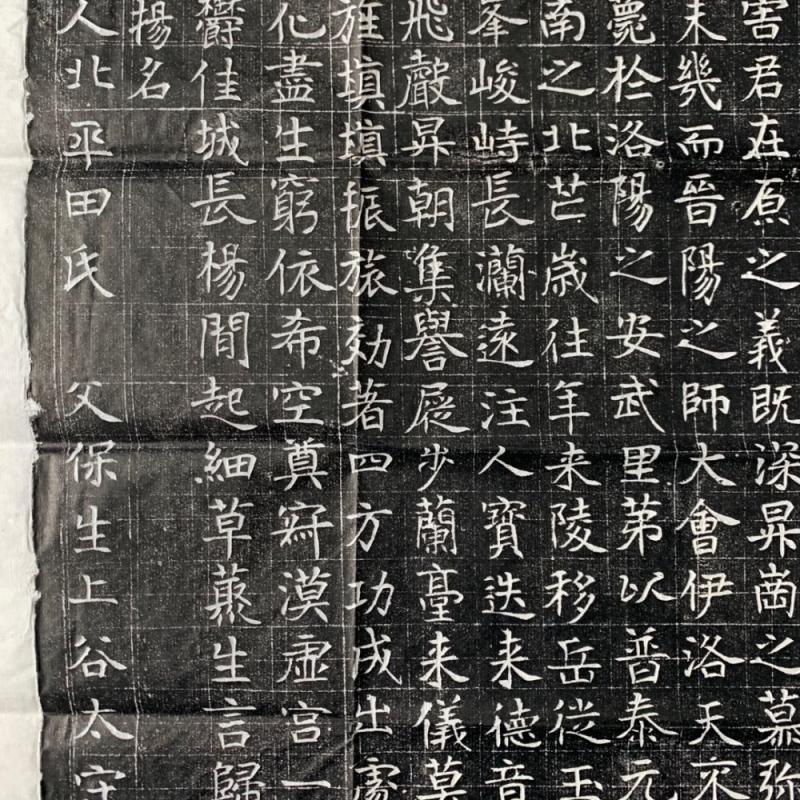 害君在原之義既深昇崗之慕弥
末幾而晉陽之師大會伊洛天不
薨於洛陽之安武里苐以普泰元
南之北芒歲往年来陵移岳從玉
峯峻峙長瀾遠注人寶迭来德音
飛聲昇朝集譽屣步蘭臺来儀莫
旌填填振旅効著四方功成出處
化盡生窮依希空奠寂漠虛宮一
欝佳城長楊間起細草藂生言歸
揚名
人北平田氏 父保生上谷太守